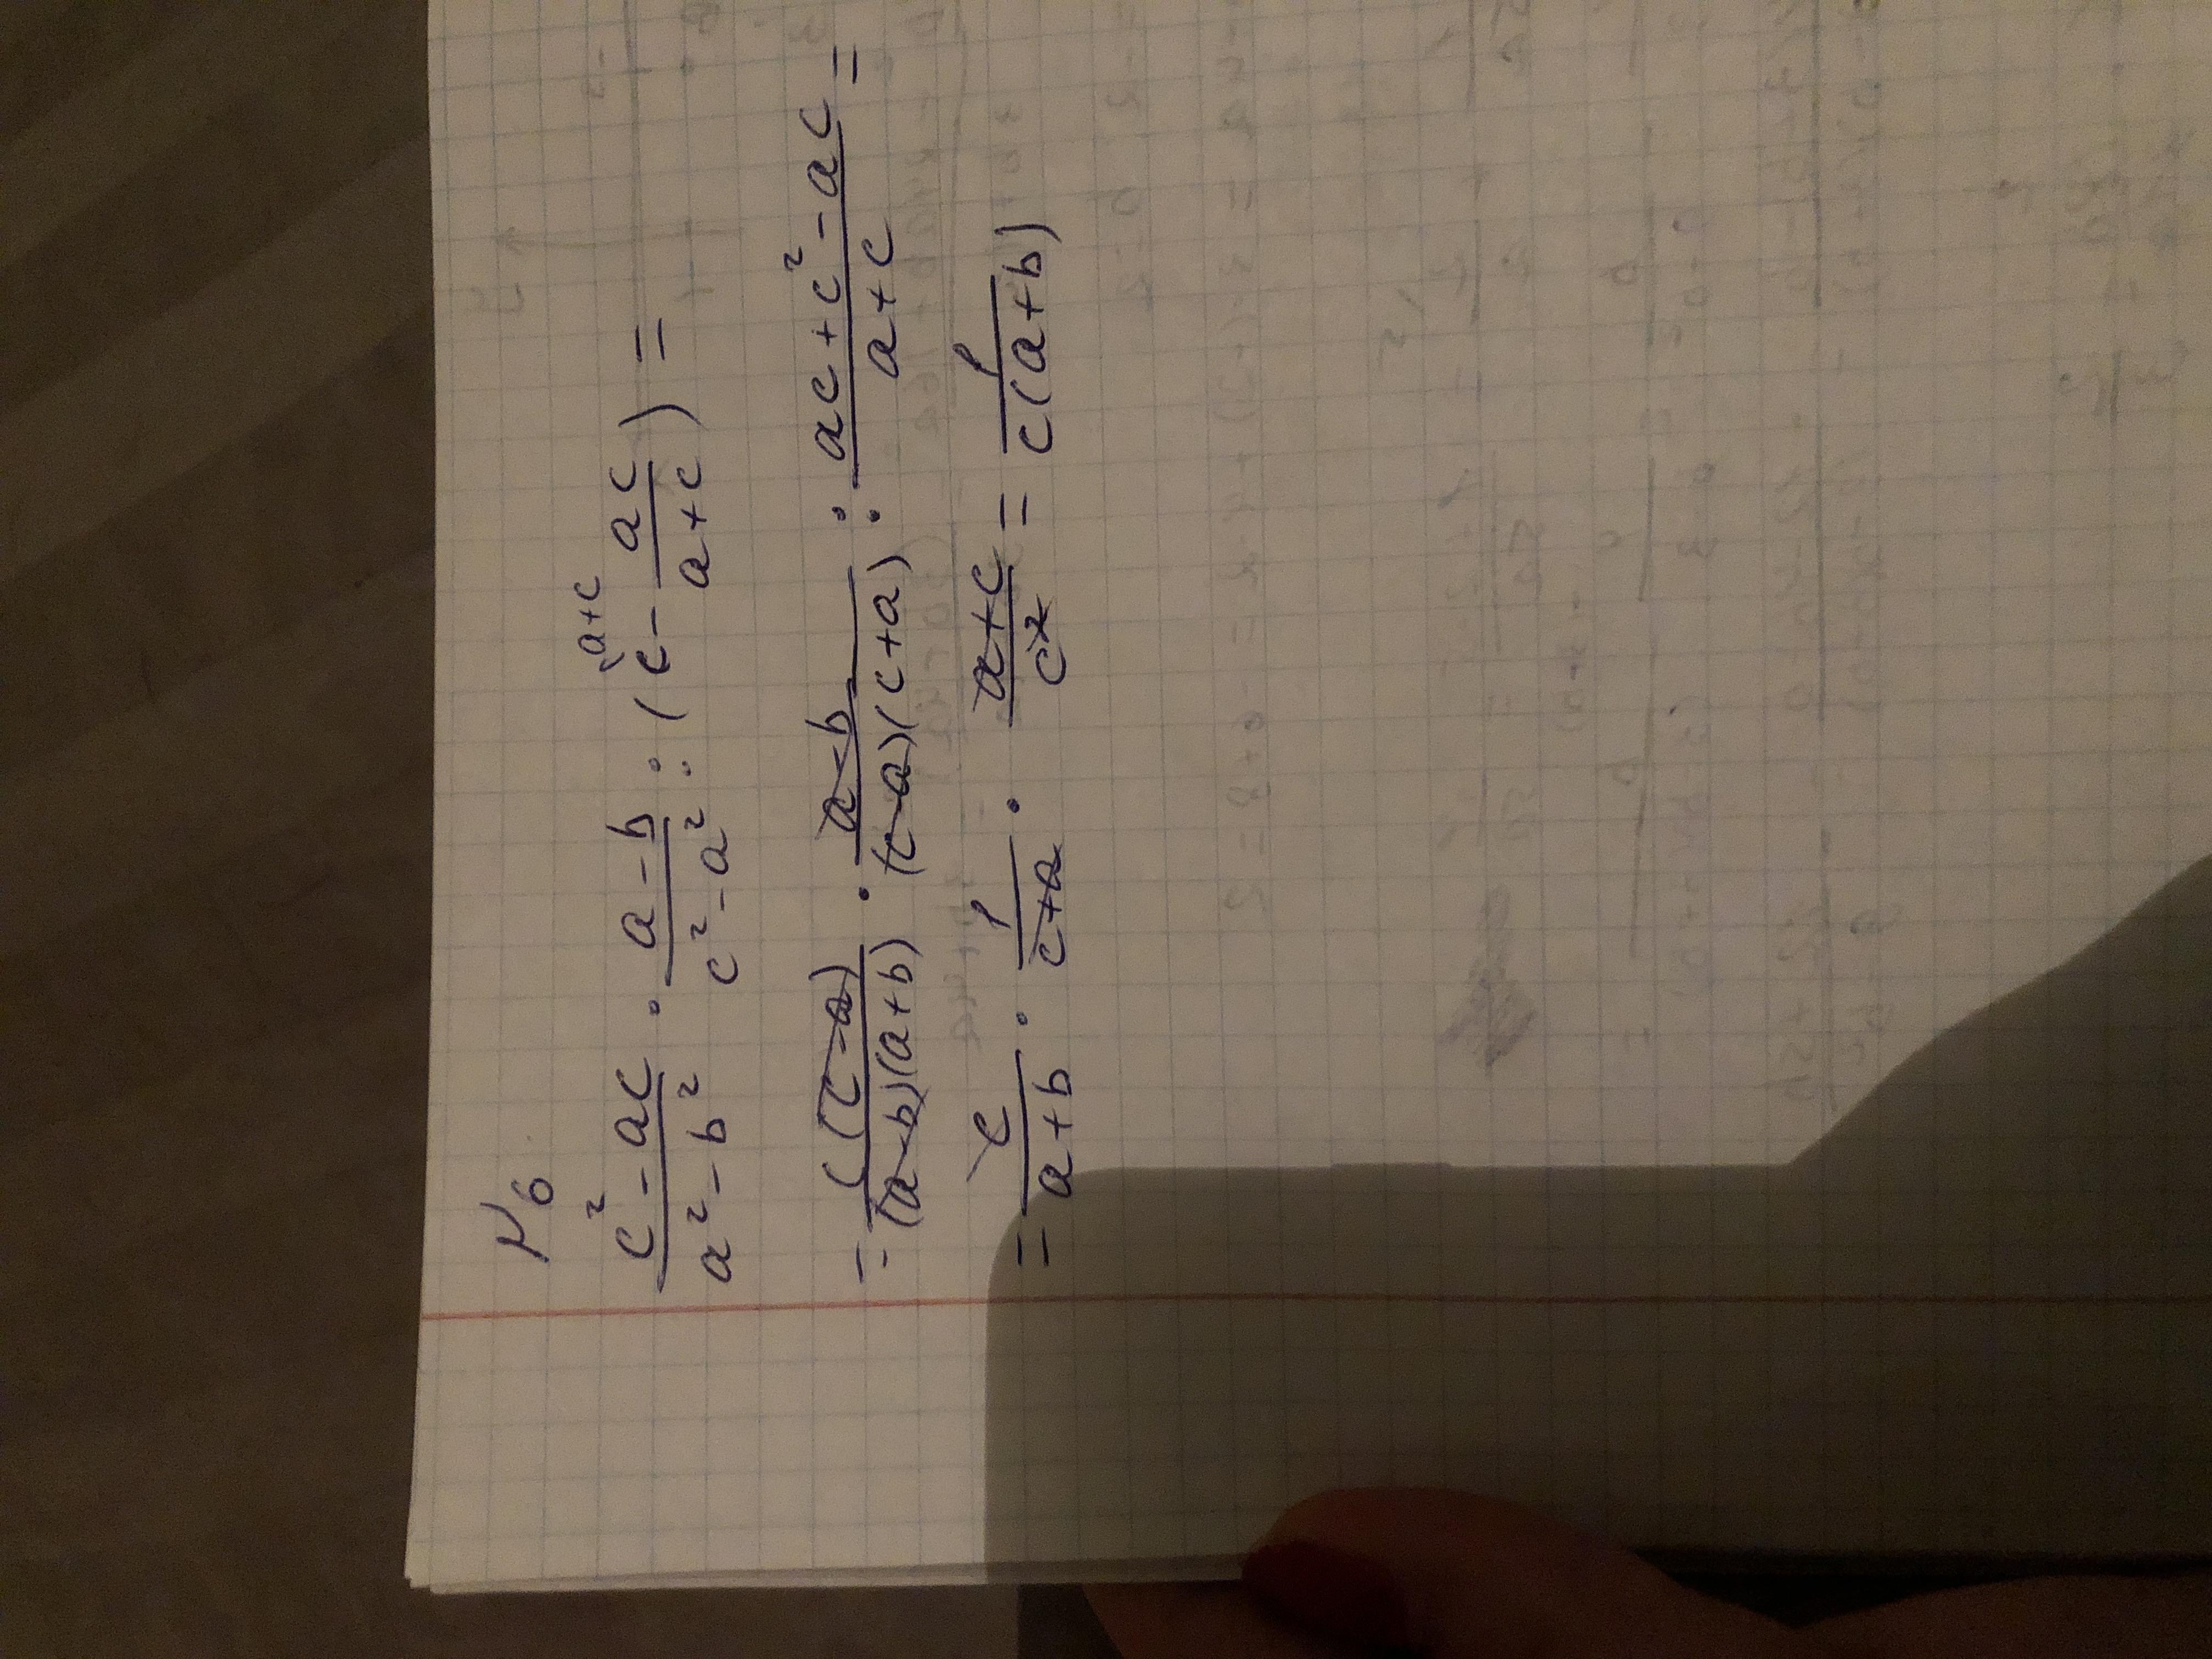 №6
(c² - ac)/(a² - b²) · (a - b)/(c² - a²) : (c^(a+c) - ac/(a+c)) =
= c(c-a)/((a-b)(a+b)) · (a-b)/((c-a)(c+a)) : (ac + c² - ac)/(a+c) =
= c/(a+b) · 1/(c+a) · (a+c)/c² = 1/(c(a+b))